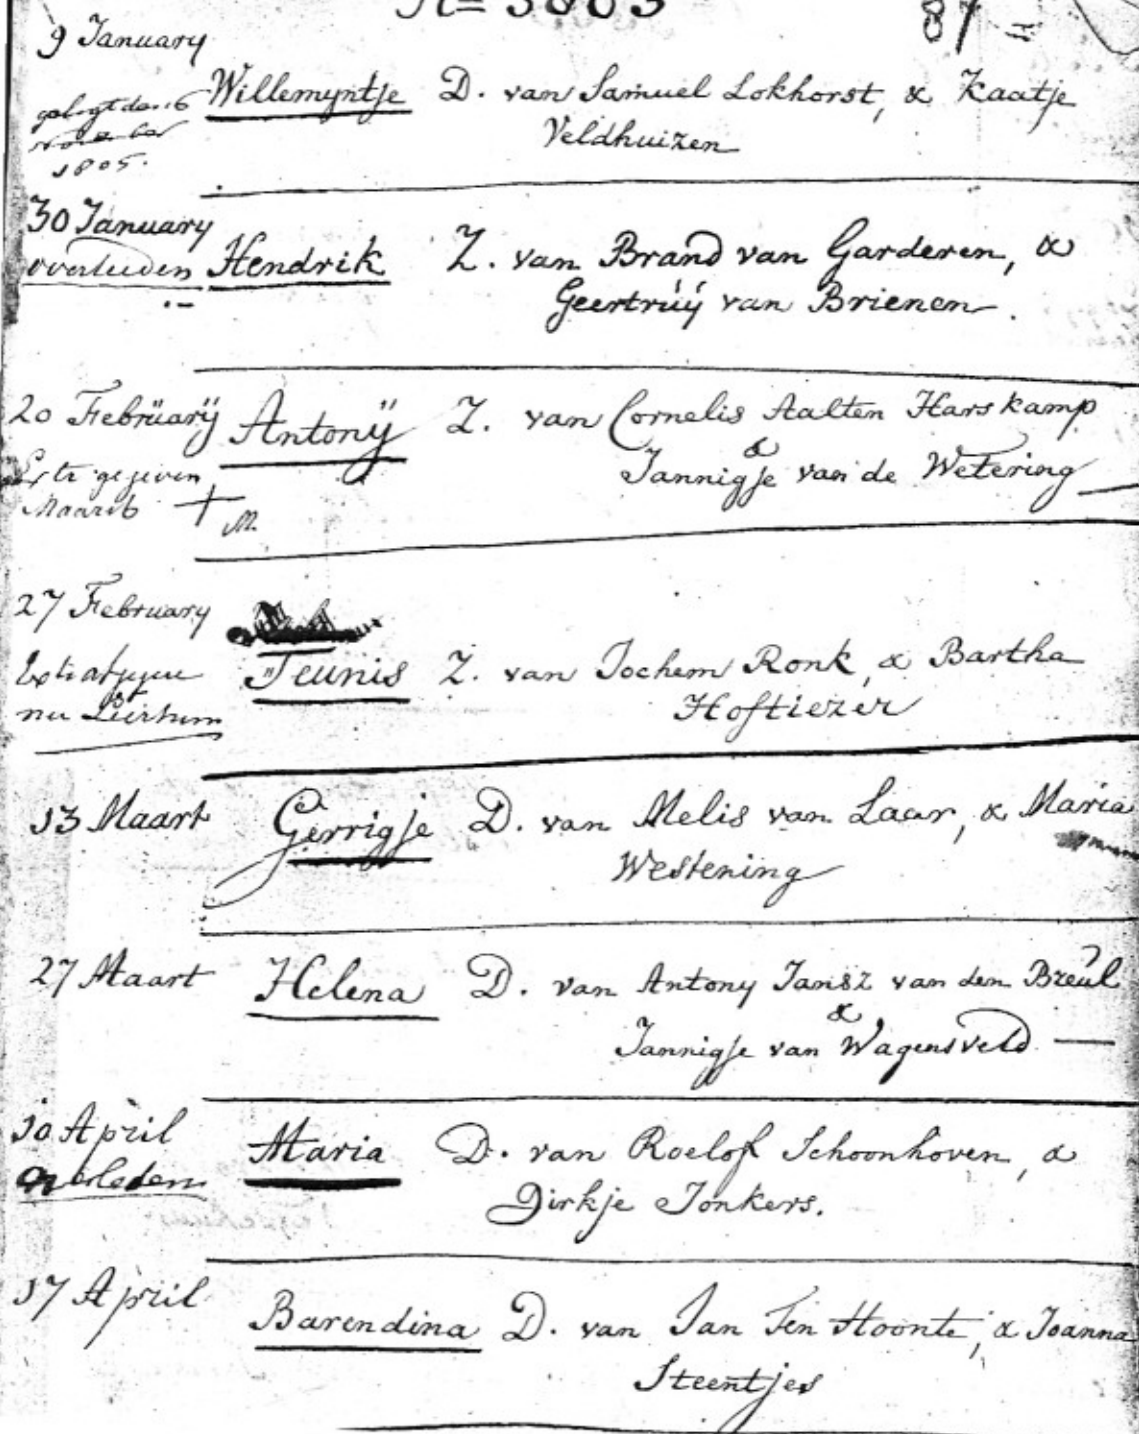 1803
87
9 January
Willemyntje D. van Samuel Lokhorst, & Kaatje
Veldhuizen
1805.
30 January
overleeden Hendrik Z. van Brand van Garderen, &
Geertrúÿ van Brienen.
20 Februarÿ Antonÿ Z. van Cornelis Aalten Harskamp
&
Jannigje van de Wetering
gegeven
M.
27 February
Teunis Z. van Jochem Ronk, & Bartha
Hoftiezer
13 Maart Gerrigje D. van Melis van Laar, & Maria
Westening
27 Maart Helena D. van Antony Jansz van den Breul
&
Jannigje van Wagensveld
10 April
overleden Maria D. van Roelof Schoonhoven, &
Dirkje Jonkers.
17 April
Barendina D. van Jan Ten Hoonte, & Joanna
Steentjes